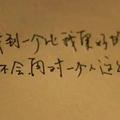 到一个比我更好的
不会用对一个人这